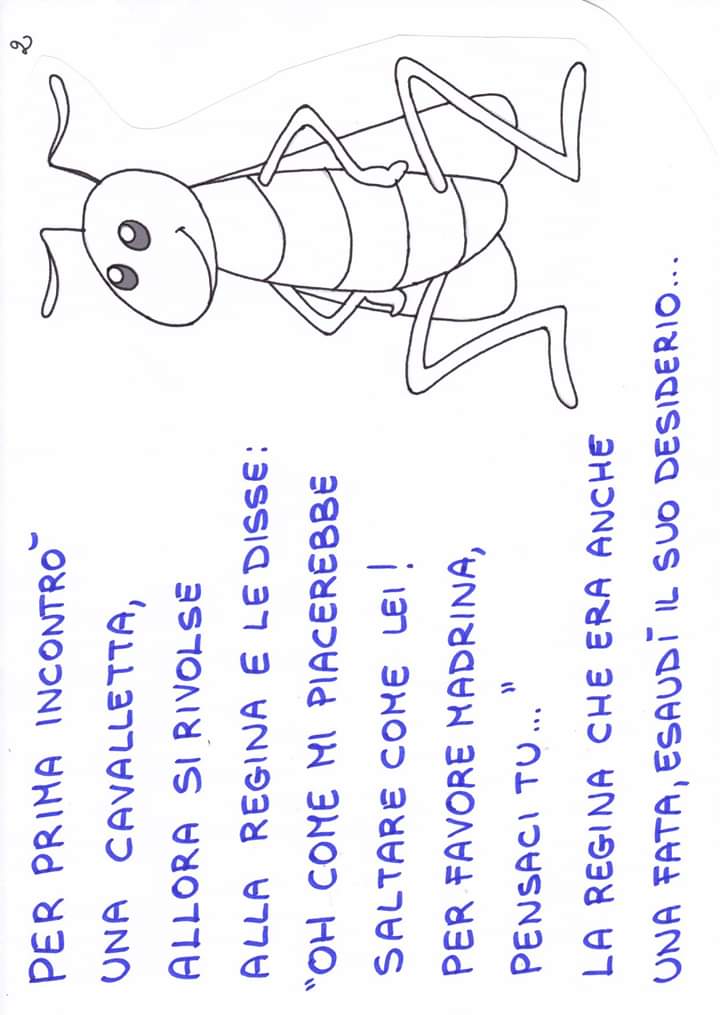 2
PER PRIMA INCONTRÒ
UNA CAVALLETTA,
ALLORA SI RIVOLSE
ALLA REGINA E LE DISSE:
"OH COME MI PIACEREBBE
SALTARE COME LEI!
PER FAVORE MADRINA,
PENSACI TU..."
LA REGINA CHE ERA ANCHE
UNA FATA, ESAUDÌ IL SUO DESIDERIO...